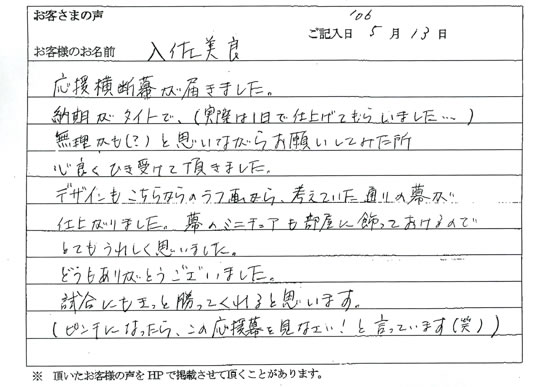 お客さまの声
'06
ご記入日 5月13日
お客様のお名前 入佐美良
応援横断幕が届きました。
納期がタイトで、(実際は1日で仕上げてもらいました…)
無理かも(?)と思いながらお願いしてみた所
心良くひき受けて頂きました。
デザインもこちらからのラフ画から、考えていた通りの幕が
仕上がりました。幕のミニチュアも部屋に飾っておけるので
とてもうれしく思いました。
どうもありがとうございました。
試合にもきっと勝ってくれると思います。
(ピンチになったら、この応援幕を見なさい!と言っています(笑))
※ 頂いたお客様の声をHPで掲載させて頂くことがあります。